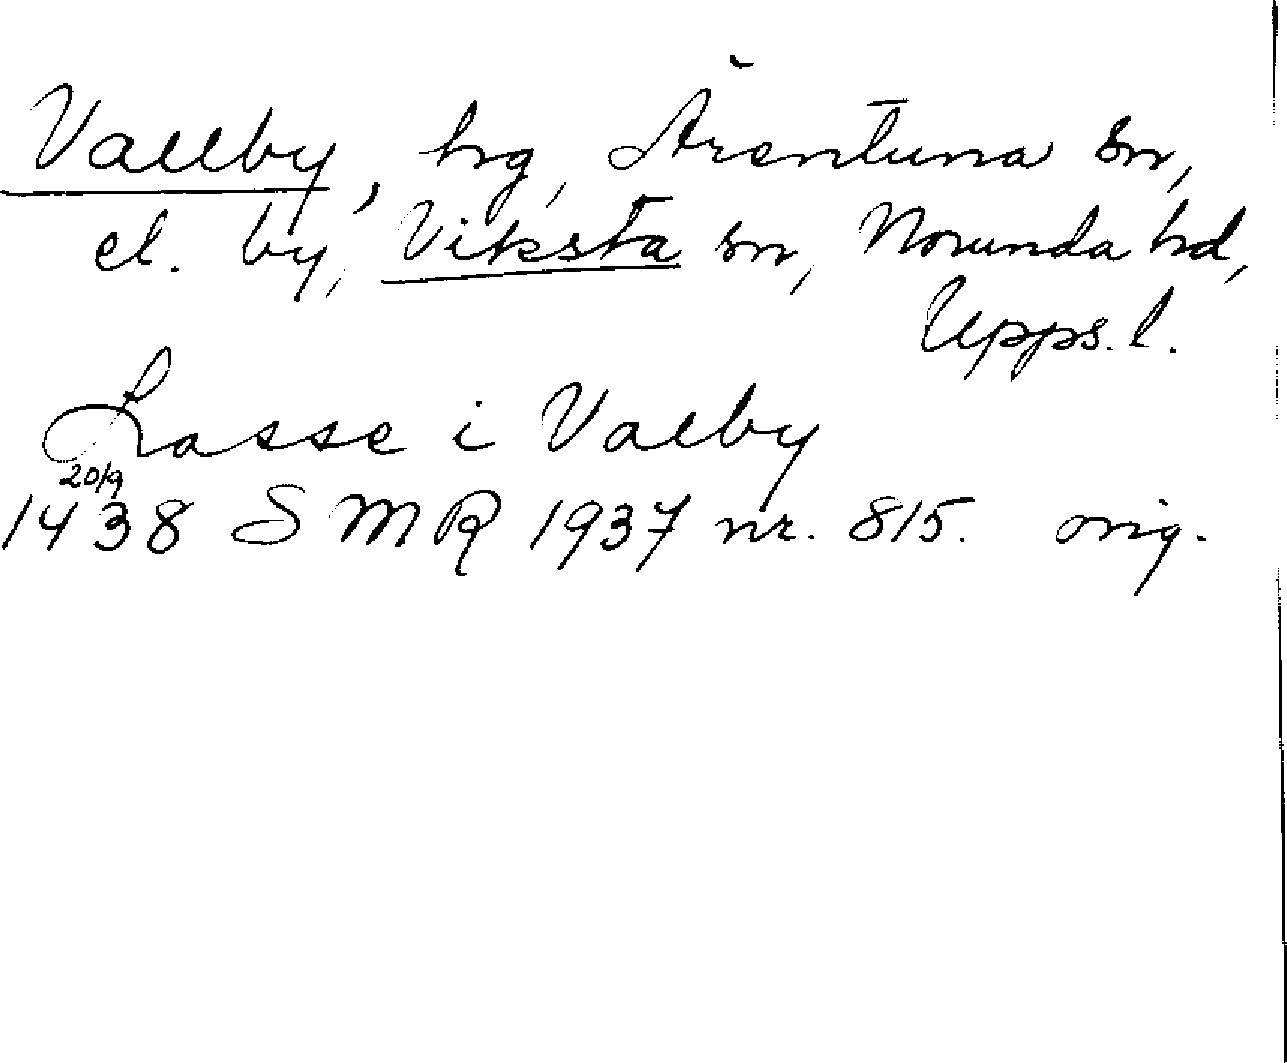 Vallby, hg, Ärentuna sn,
el. by, Viksta sn, Norunda hd,
Upps. l.
Lasse i Valby
20/9
1438 SMR 1937 nr. 815. orig.